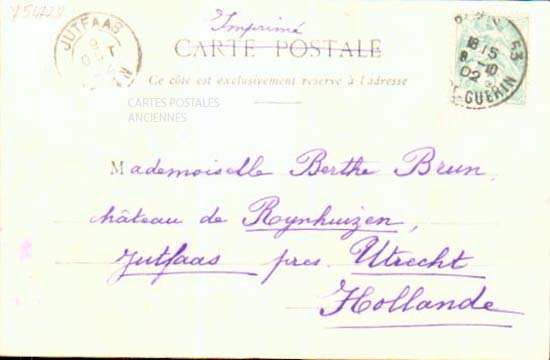 754228
Imprimé
CARTE POSTALE
Ce côté est exclusivement réservé à l'adresse
JUTFAAS
9
PARIS 53
18 15
8 -10
02
GUERIN
CARTES POSTALES
ANCIENNES
Mademoiselle Berthe Brun
château de Rynhuizen,
Jutfaas près Utrecht
Hollande